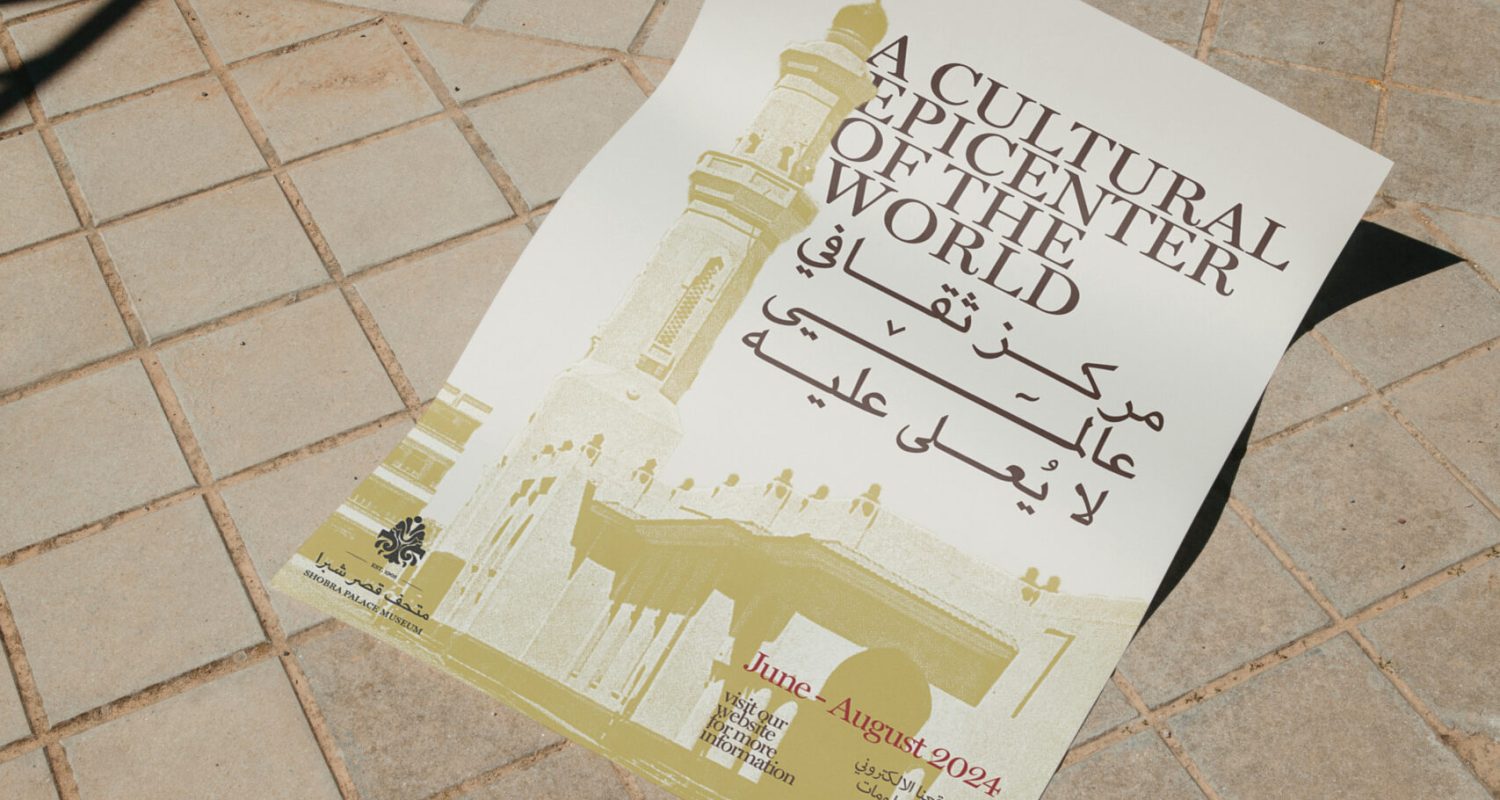 A CULTURAL
EPICENTER
OF THE
WORLD
مركز ثقافي
عالمي
لا يُعلى عليه
EST.
متحف قصر شبرا
SHOBRA PALACE MUSEUM
June - August 2024
visit our
website
for more
information
الالكتروني